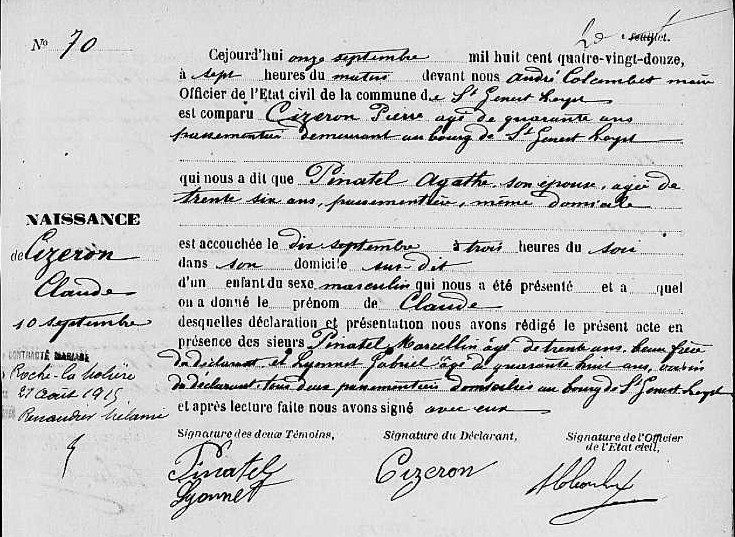 N° 70
feuillet.
Cejourd'hui onze septembre mil huit cent quatre-vingt-douze,
à sept heures du matin devant nous André Colombet maire
Officier de l'Etat civil de la commune de St Genest Lerpt
est comparu Cizeron Pierre agé de quarante ans
passementier demeurant au bourg de St Genest Lerpt
qui nous a dit que Pinatel Agathe son épouse, agée de
trente six ans, passementière, même domicile
est accouchée le dix septembre à trois heures du soir
dans son domicile sus-dit
d'un enfant du sexe masculin qui nous a été présenté et a quel
on a donné le prénom de Claude
desquelles déclaration et présentation nous avons rédigé le présent acte en
présence des sieurs Pinatel Marcellin agé de trente ans, beau frère
du déclarant et Lyonnet Gabriel agé de quarante huit ans, voisin
du déclarant, tous deux passementiers domiciliés au bourg de St Genest Lerpt
et après lecture faite nous avons signé avec eux
Signature des deux Témoins, Signature du Déclarant, Signature de l'Officier
de l'Etat civil,
Pinatel Cizeron
Lyonnet
NAISSANCE
de Cizeron
Claude
10 septembre
CONTRACTÉ MARIAGE
Roche-la-Molière
21 août 1915
Mélanie